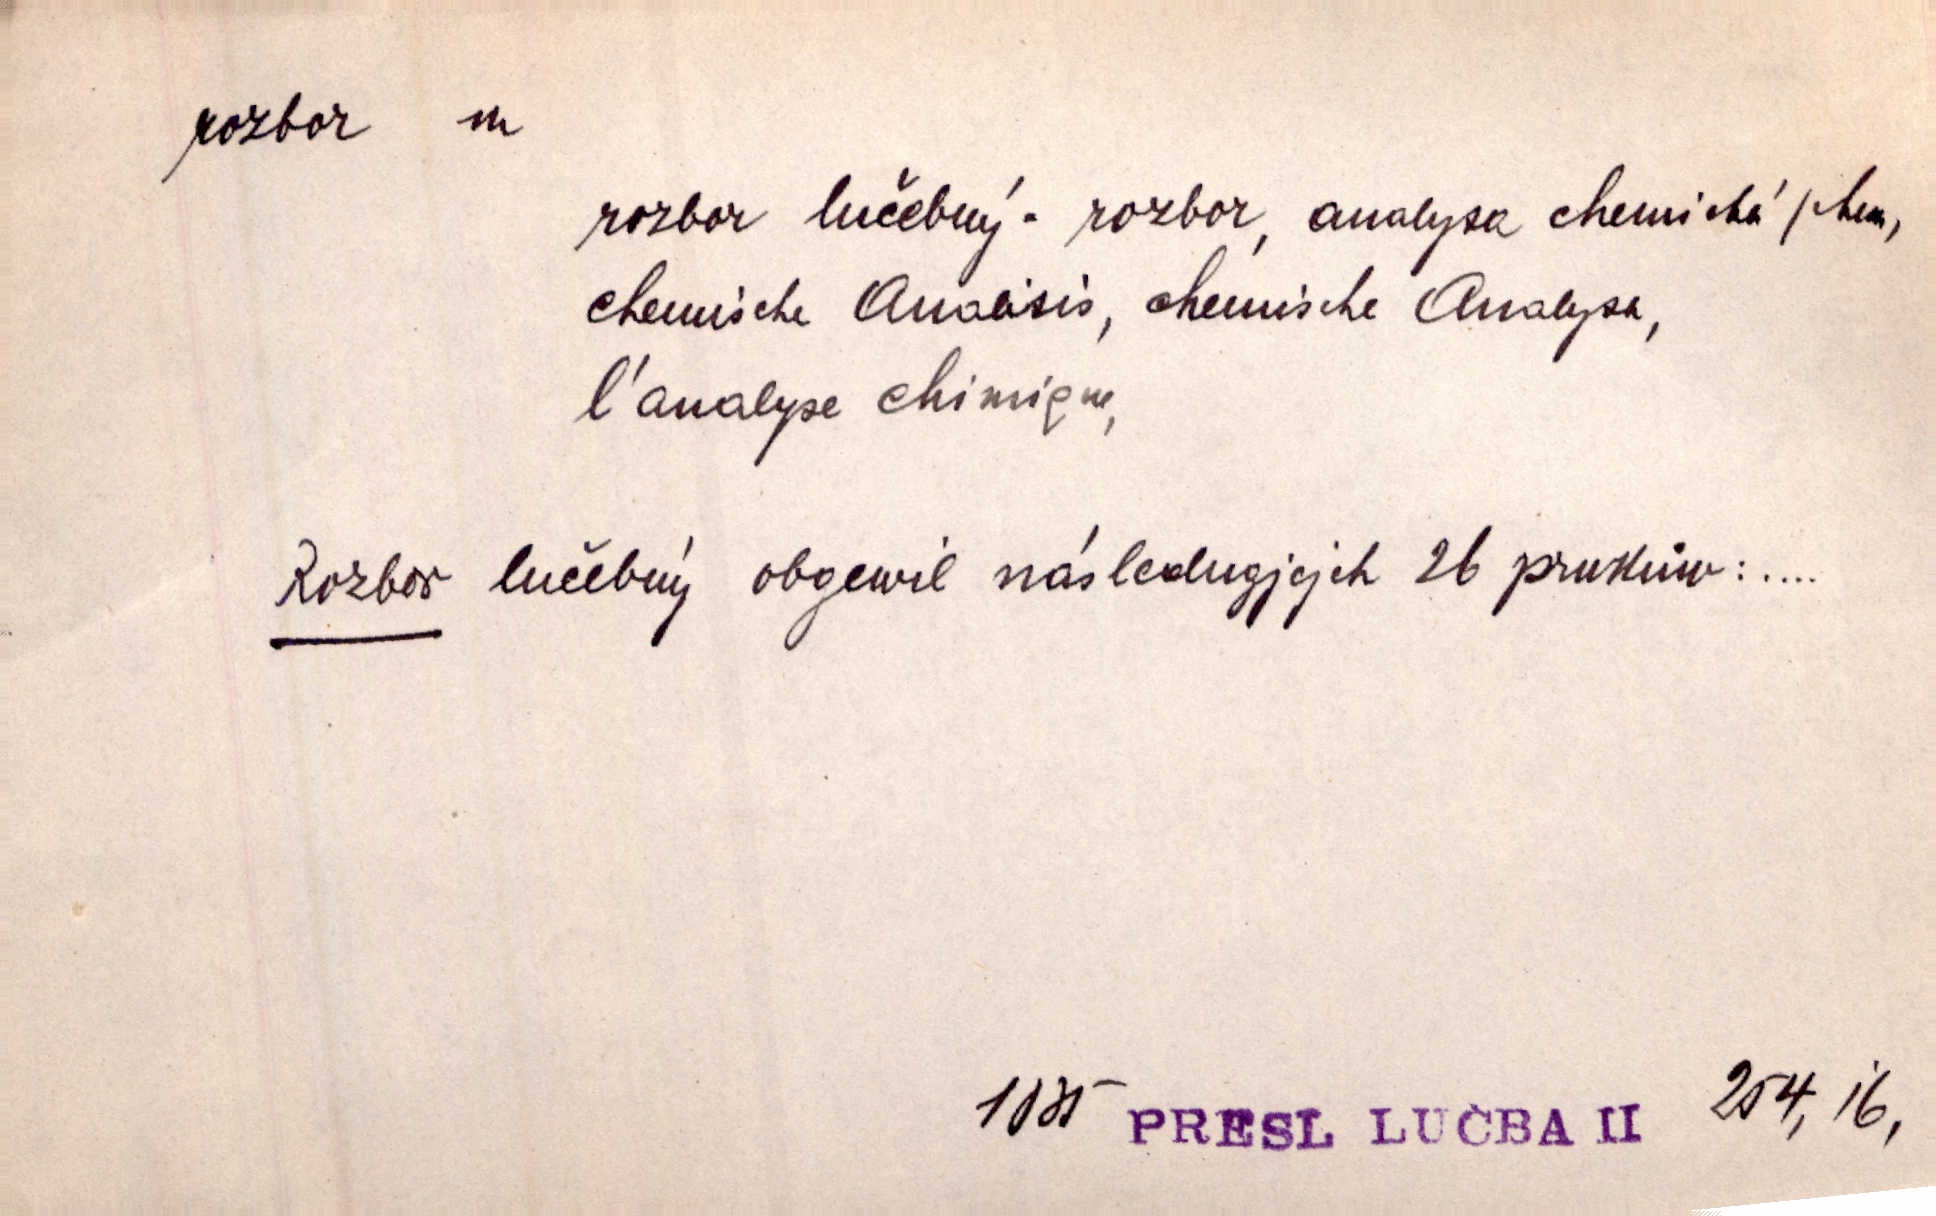 rozbor m
rozbor lučebný - rozbor, analysa chemická / chem,
chemische Analisis, chemische Analysa,
l'analyse chimique,
Rozbor lučebný obgewil následugjcjch 26 prwkůw: ....
1835 PRESL LUČBA II 254, 16,